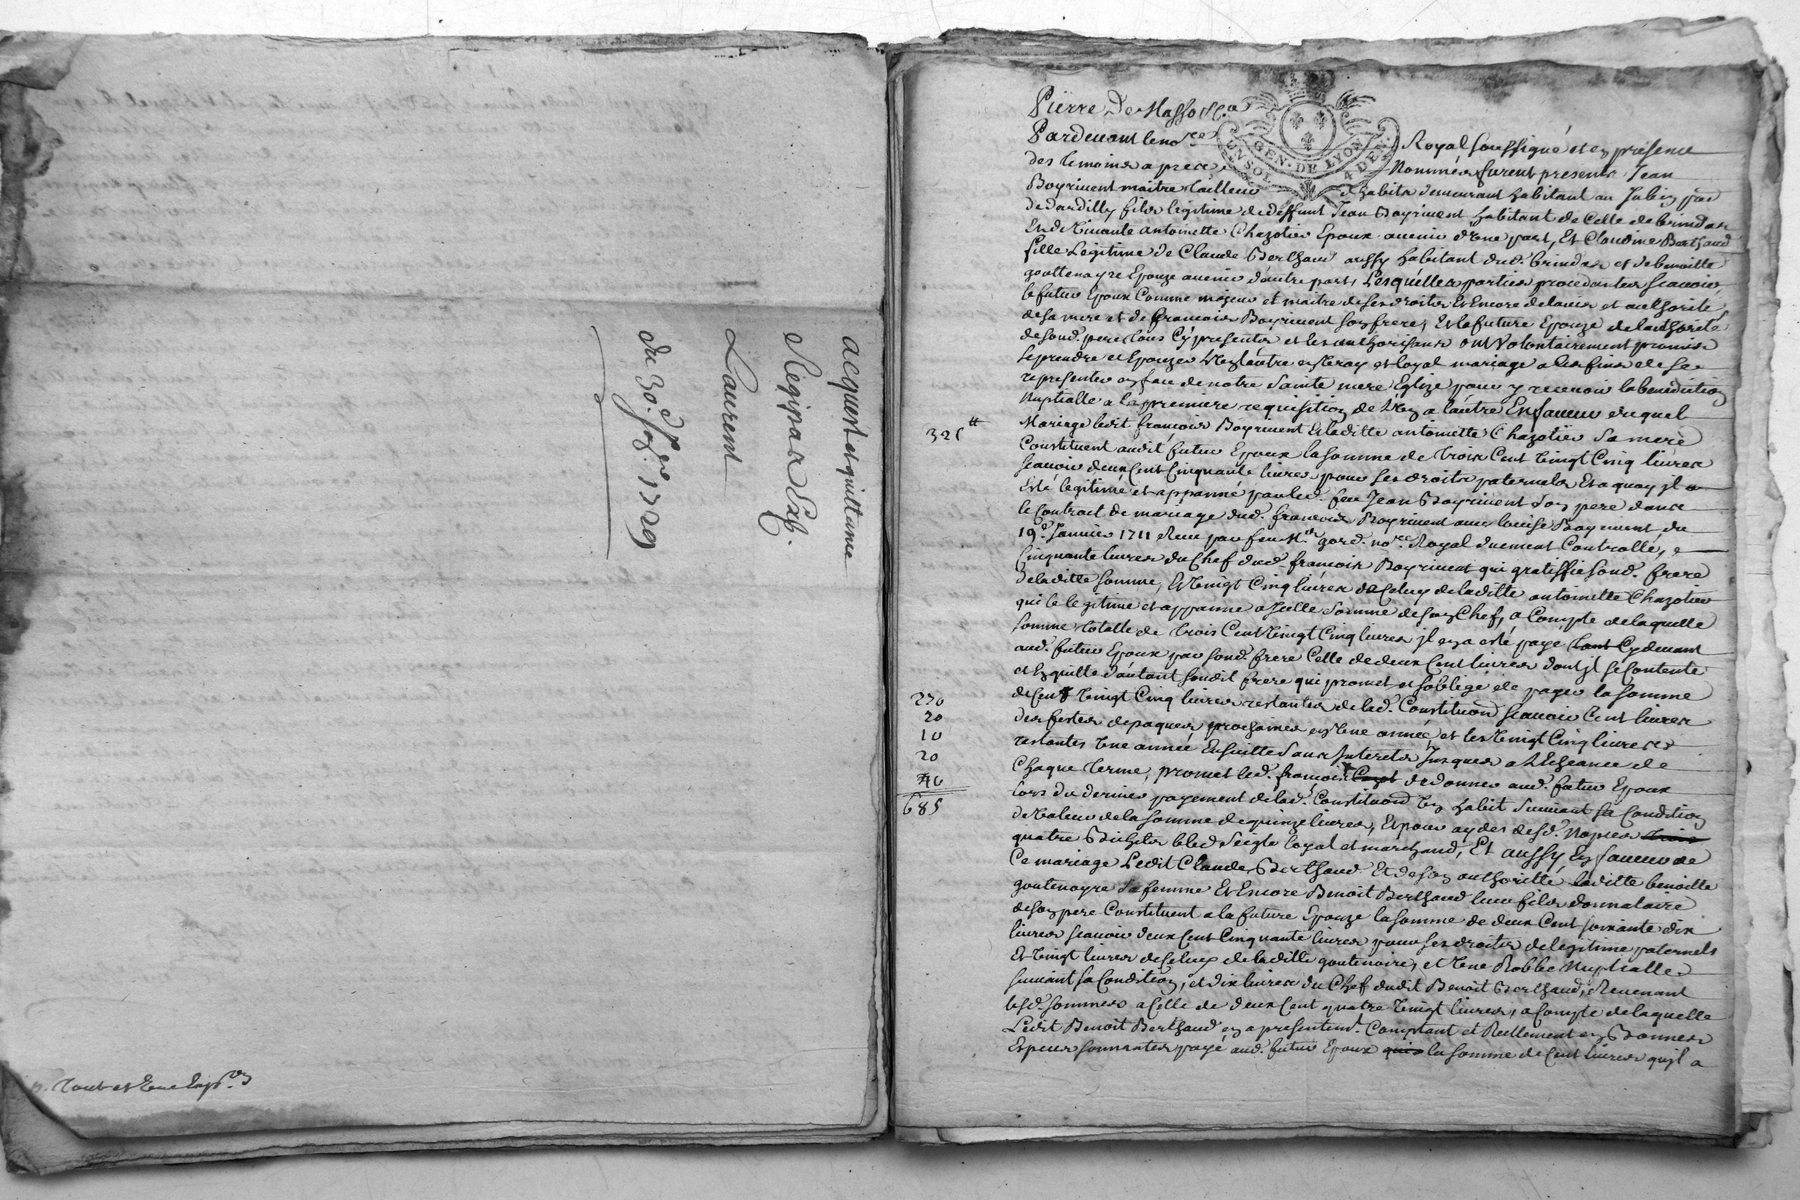 acquest et quittance
Laurent
du 30.e 1729
Pierre De Masso &c.a
Pardevant le no.re Royal soussigné et en présence
des temoins apres Nommés furent presents Jean
Boyriuent maitre tailleur d'habits demeurant habitant au
de dardilly fils legitime de deffunt Jean Boyriuent habitant de Celle de brindas
Et de viuante antoinette Chazotier Epoux auenir d'Vne part, Et Claudine Berthaud
fille Legitime de Claude Berthaud aussy habitant dud. brindas et de benoitte
gouttenoyre Epouze auenir d'autre part, Lesquelles parties procedantes scauoir
le futur Epoux Comme majeur et maitre de ses droits Et Encore de lauis et authorité
de sa mere et de francois Boyriuent son frere, Et la future Epouze de lauthorité
de sond. pere tous Cy presents et les authorisants ont Volontairement promis
se prendre et Epouzer L'Vn l'autre en vray et loyal mariage a Ces fins de se
representer en face de notre Sainte mere Eglize pour y recevoir la benediction
Nuptialle a la premiere requisition de L'Vn a lautre En faueur duquel
325 tt
Mariage ledit francois Boyriuent Et laditte antoinette Chazotier sa mere
Constituent audit futur Epoux la somme de trois Cent Vingt Cinq liures
scauoir deux Cent Cinquante liures pour ses droits paternels Et a quoy il a
Esté legitimé et appanné par led. feu Jean Boyriuent son pere dans
le Contrait de mariage dud. francois Boyriuent auec louise Boyriuent du
19.e Januier 1711 Receu par feu M.re gord. no.re Royal duement Controllé, et
Cinquante liures du Chef dud. francois Boyriuent qui gratiffie sond. frere
de laditte somme, Et Vingt Cinq liures de Celuy de laditte antoinette Chazotier
qui le legitime et appanne a Jcelle somme de son Chef, a Compte de laquelle
somme totalle de trois Cent Vingt Cinq liures il en a esté payé tant Cy deuant
aud. futur Epoux par sond. frere Celle de deux Cent liures dont il se Contente
et En quitte d'autant sondit frere qui promet et s'obligé de payer la somme
de Cent Vingt Cinq liures restantes de lad. Constituon scauoir Cent liures
des festes de paques prochaines en Vne année et les Vingt Cinq liures
restantes Vne année Ensuitte sans Interets Jusques a Echeance de
Chaque terme, promet led. francois de donner aud. futur Epoux
lors du dernier payement de lad. Constituon Vn habit suiuant sa Condition
de Valeur de la somme de quinze liures, Et pour ayder des d. Nopces trois
quatre Bichets bled seigle loyal et marchand, Et aussy En faueur de
Ce mariage Ledit Claude Berthaud Et de son authoritté laditte benoitte
goutenoyre sa femme Et Encore Benoit Berthaud leur fils donnataire
de son pere Constituent a la future Epouze la somme de deux Cent soixante dix
liures scauoir deux Cent Cinquante liures pour ses droits de legitime paternels
Et Vingt liures de Celuy de laditte goutenoire, et Vne Robbe Nuptialle
suiuant sa Condition, et dix liures du Chef dudit Benoit Berthaud, Reuenant
lesd. sommes a Celle de deux Cent quatre Vingt liures, a Compte de laquelle
Ledit Benoit Berthaud en a presentem.t Comptant et Reellement en Bonnes
Especes sonnantes payé aud. futur Epoux la somme de Cent liures qu'il a
270
20
10
20
40
685
GEN. DE LYON
UN SOL 4 DEN.